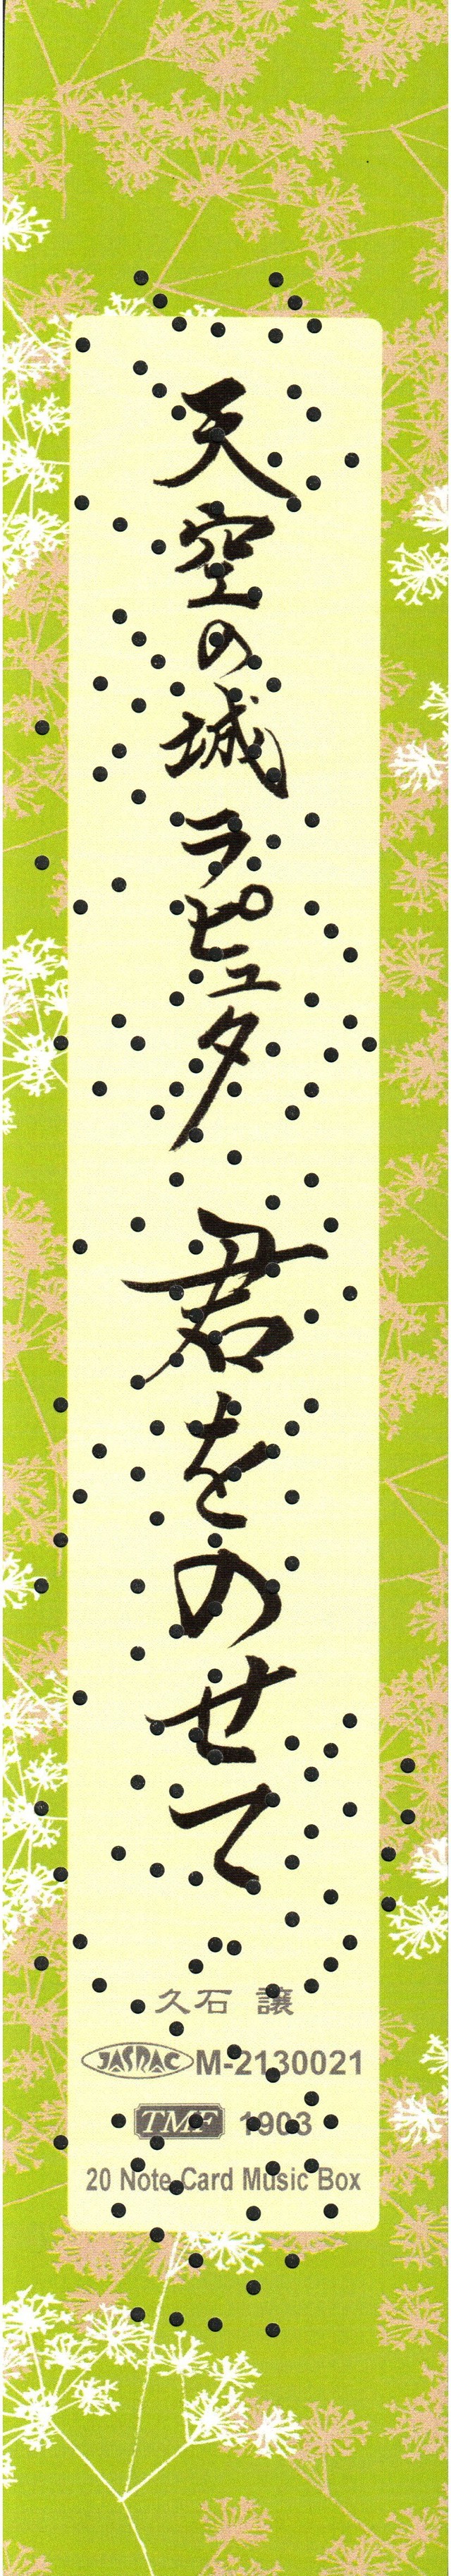 天空の城ラピュタ 君をのせて
久石 譲
JASRAC M-2130021
TMF 1903
20 Note Card Music Box